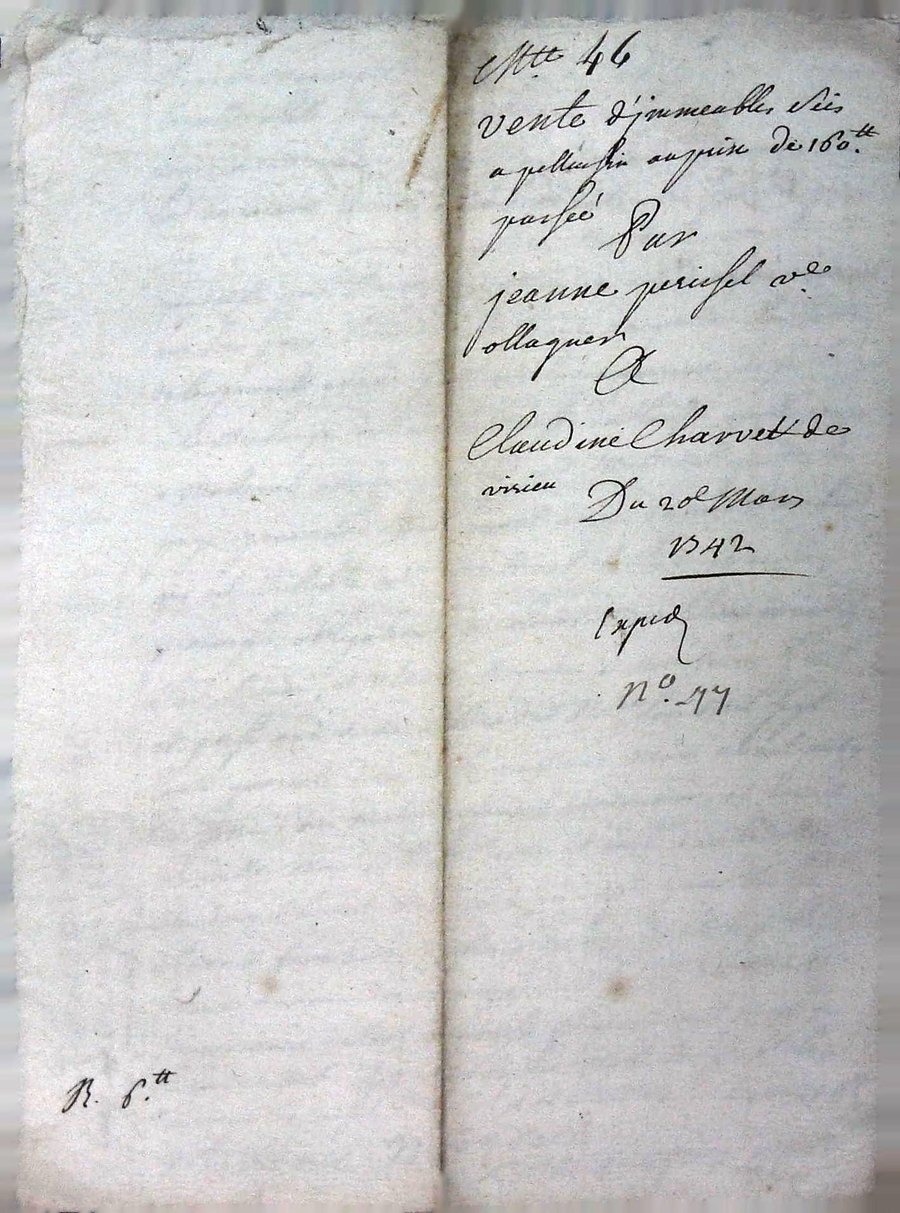 46
vente d'jmmeubles scis
a pellussin au prix de 160.tt
passée
Par
jeanne perissel ve
ollagner
A
Claudine Charvet de
virieu
Du 20e Mars
1742
Exped
no. 47
R. 6.tt